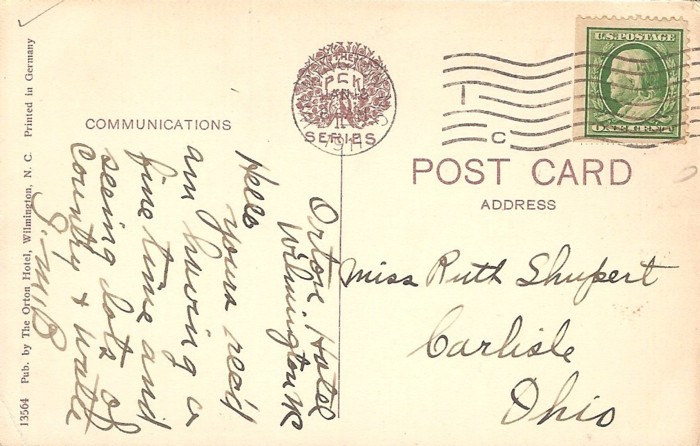 13564 Pub. by The Orton Hotel, Wilmington, N. C. Printed in Germany
COMMUNICATIONS
THE
SERIES
U.S. POSTAGE
ONE CENT
1
C
POST CARD
ADDRESS
Orton Hotel
Wilmington NC
Hello
yours rec'd
am having a
fine time and
seeing lots of
County & water
J.M.B
Miss Ruth Shupert
Carlisle
Ohio